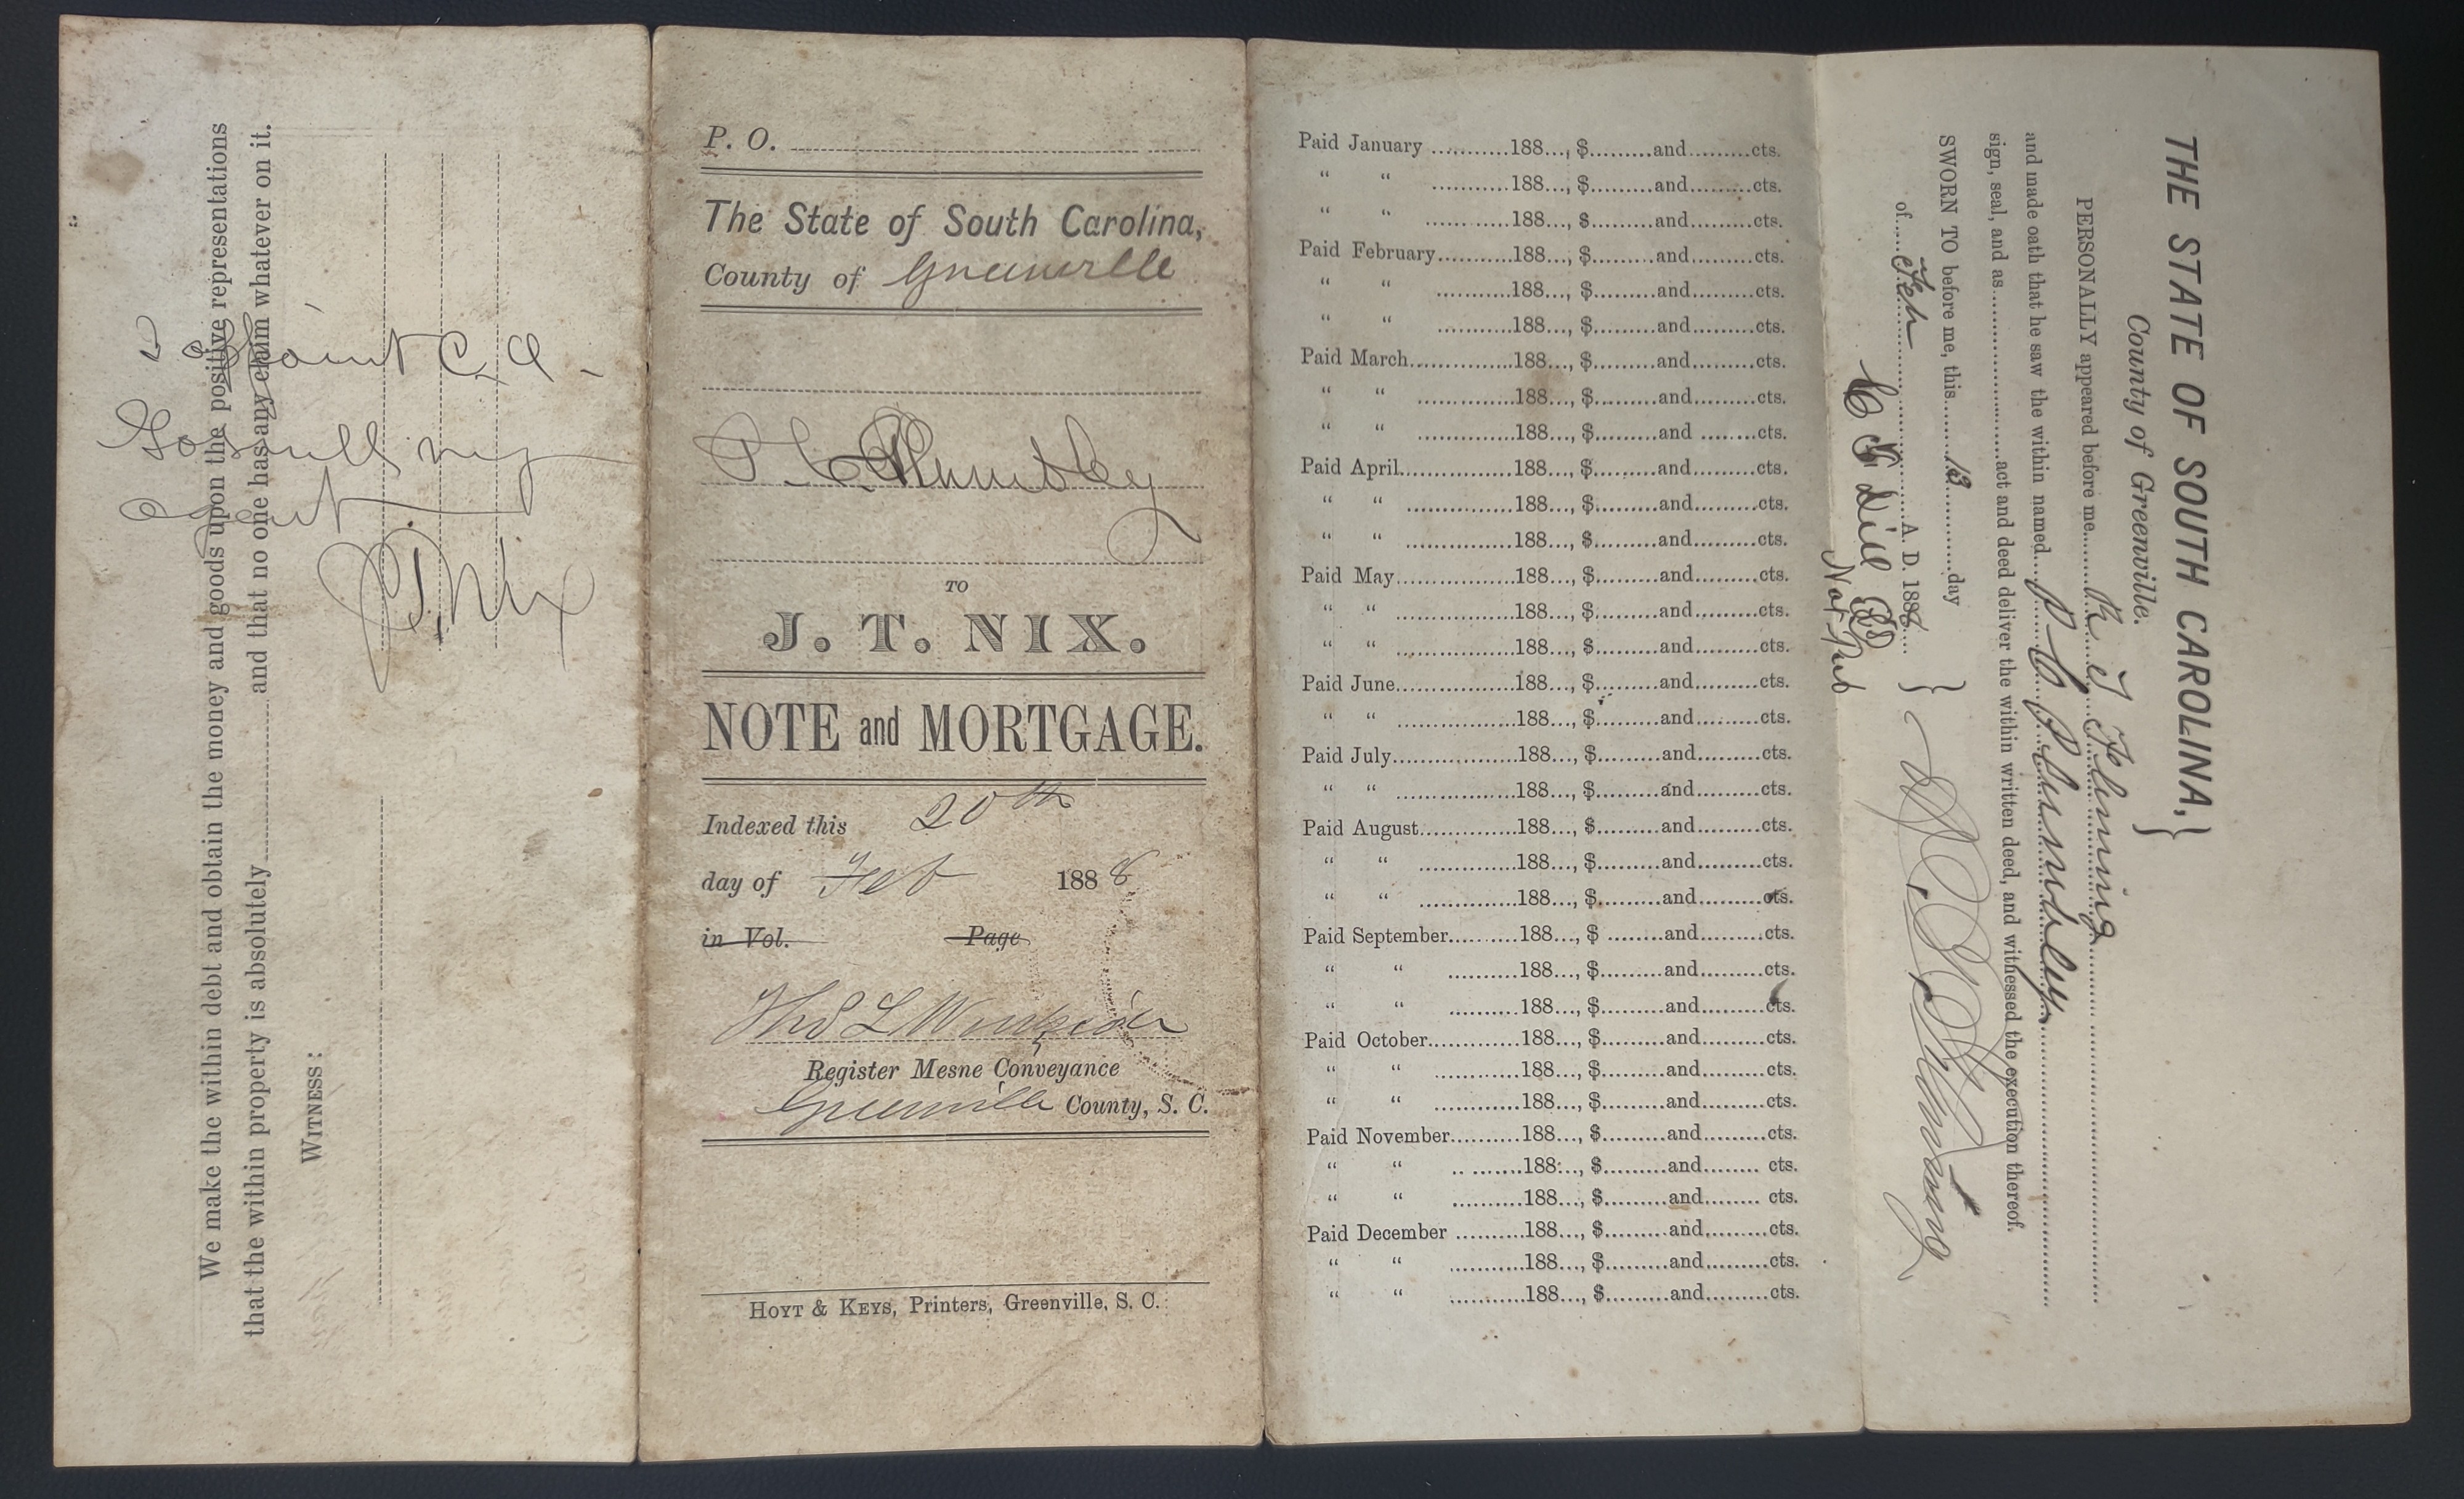 We make the within debt and obtain the money and goods upon the positive representations
that the within property is absolutely and that no one has any claim whatever on it.
WITNESS:
I apoint C. A.
Gosnell my
agent
J. T. Nix
P. O.
The State of South Carolina,
County of Greenville
P. C. Plumbley
TO
J. T. NIX.
NOTE and MORTGAGE.
Indexed this 20th
day of Feb 1888
in Vol. Page
Register Mesne Conveyance
Greenville County, S. C.
HOYT & KEYS, Printers, Greenville, S. C.
Paid January ...........188..., $.........and.........cts.
“ “ ...........188..., $.........and.........cts.
“ “ ...........188..., $.........and.........cts.
Paid February...........188..., $.........and.........cts.
“ “ ...........188..., $.........and.........cts.
“ “ ...........188..., $.........and.........cts.
Paid March...........188..., $.........and.........cts.
“ “ ...........188..., $.........and.........cts.
“ “ ...........188..., $.........and.........cts.
Paid April...........188..., $.........and.........cts.
“ “ ...........188..., $.........and.........cts.
“ “ ...........188..., $.........and.........cts.
Paid May...........188..., $.........and.........cts.
“ “ ...........188..., $.........and.........cts.
“ “ ...........188..., $.........and.........cts.
Paid June...........188..., $.........and.........cts.
“ “ ...........188..., $.........and.........cts.
Paid July...........188..., $.........and.........cts.
“ “ ...........188..., $.........and.........cts.
Paid August...........188..., $.........and.........cts.
“ “ ...........188..., $.........and.........cts.
“ “ ...........188..., $.........and.........cts.
Paid September...........188..., $.........and.........cts.
“ “ ...........188..., $.........and.........cts.
“ “ ...........188..., $.........and.........cts.
Paid October...........188..., $.........and.........cts.
“ “ ...........188..., $.........and.........cts.
“ “ ...........188..., $.........and.........cts.
Paid November...........188..., $.........and.........cts.
“ “ ...........188..., $.........and.........cts.
“ “ ...........188..., $.........and.........cts.
Paid December ...........188..., $.........and.........cts.
“ “ ...........188..., $.........and.........cts.
“ “ ...........188..., $.........and.........cts.
THE STATE OF SOUTH CAROLINA, }
County of Greenville. }
PERSONALLY appeared before me R. T. Fleming
and made oath that he saw the within named P. C. Plumbley
sign, seal, and as act and deed deliver the within written deed, and witnessed the execution thereof.
SWORN TO before me, this 13 day }
of Feb A. D. 1888
C G Dill
Not Pub